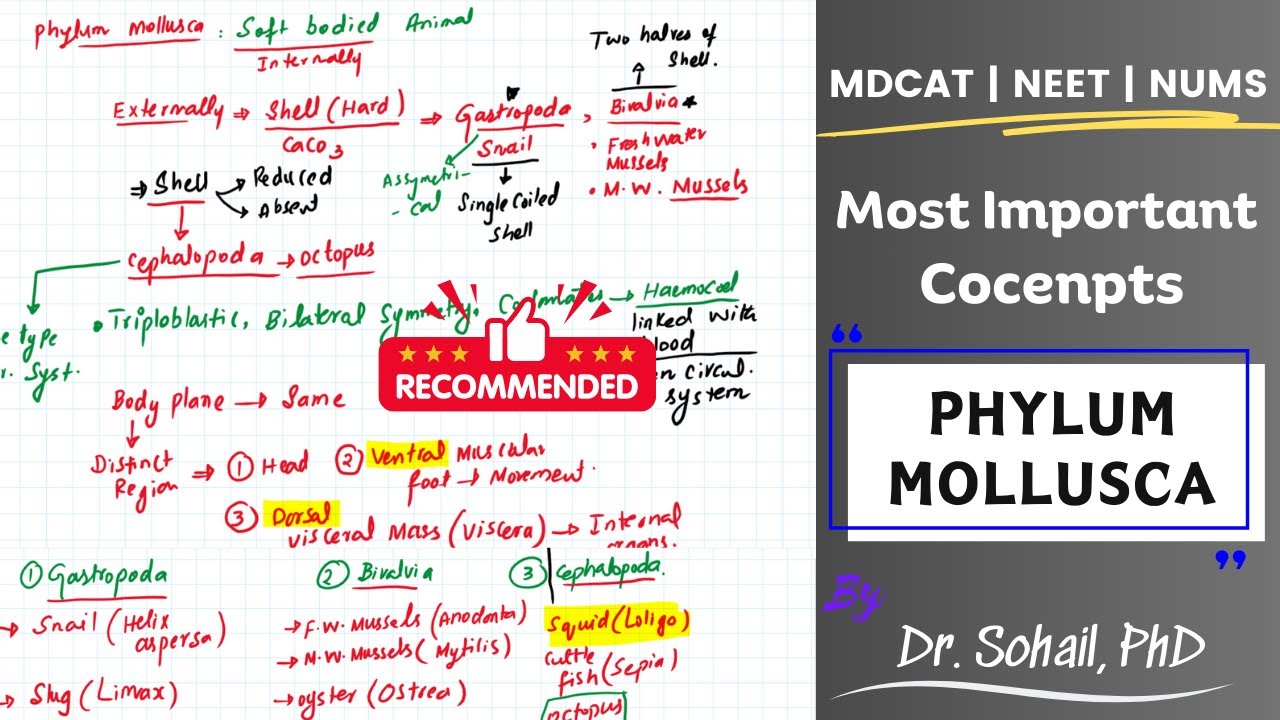 Phylum Mollusca : Soft bodied Animal
Internally
Externally ⇒ Shell (Hard) ⇒ Gastropoda , Bivalvia
CaCO3
Snail
Two halves of
Shell.
• Fresh water
Mussels
• M.W. Mussels
Assymetri-
-cal
Single Coiled
Shell
⇒ Shell
Reduced
Absent
Cephalopoda → Octopus
e type
. Syst.
• Triploblastic, Bilateral Symmetry, → Haemocoel
linked with
blood
circul.
system
RECOMMENDED
Body plane → Same
Distinct
Region ⇒ ① Head ② Ventral Muscular
foot → Movement.
③ Dorsal
Visceral Mass (Viscera) → Internal
organs.
① Gastropoda
→ Snail (Helix
aspersa)
→ Slug (Limax)
② Bivalvia
→ F.W. Mussels (Anodonta)
→ M.W. Mussels (Mytilis)
→ oyster (Ostrea)
③ Cephalopoda.
Squid (Loligo)
Cuttle
fish (Sepia)
octopus
MDCAT | NEET | NUMS
Most Important
Cocenpts
“
PHYLUM
MOLLUSCA
”
By
Dr. Sohail, PhD